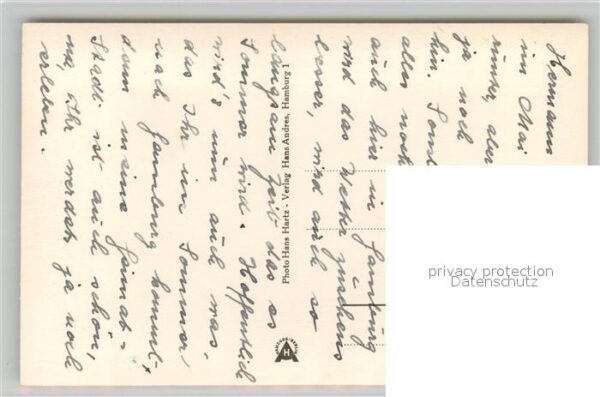 Hermann
im Mai
runter, aber
ja noch
hin. Sonst
alles noch
auch hier in Hamburg
wird das Wetter zusehens
besser, wird auch so
langsam Zeit das es
Sommer wird. Hoffentlich
wird's nun auch was,
das Ihr im Sommer
nach Hamburg kommt,
denn meine Heimat-
Stadt ist auch schön,
na, Ihr werdet ja noch
erleben.
Photo Hans Hartz - Verlag Hans Andres, Hamburg 1
H
privacy protection
Datenschutz